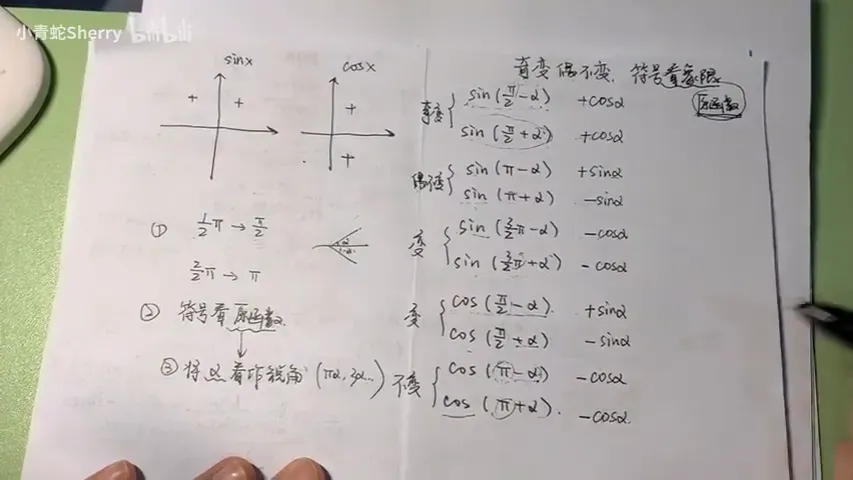 小青蛇Sherry bilibili
sinx
cosx
+ +
+
+
① 1/2π → π/2
2/2π → π
② 符号看原函数
③ 将α看作锐角
奇变偶不变,符号看象限
原函数
奇变
sin(π/2-α) +cosα
sin(π/2+α) +cosα
偶不变
sin(π-α) +sinα
sin(π+α) -sinα
变
sin(3/2π-α) -cosα
sin(3/2π+α) -cosα
变
cos(π/2-α) +sinα
cos(π/2+α) -sinα
不变
cos(π-α) -cosα
cos(π+α) -cosα